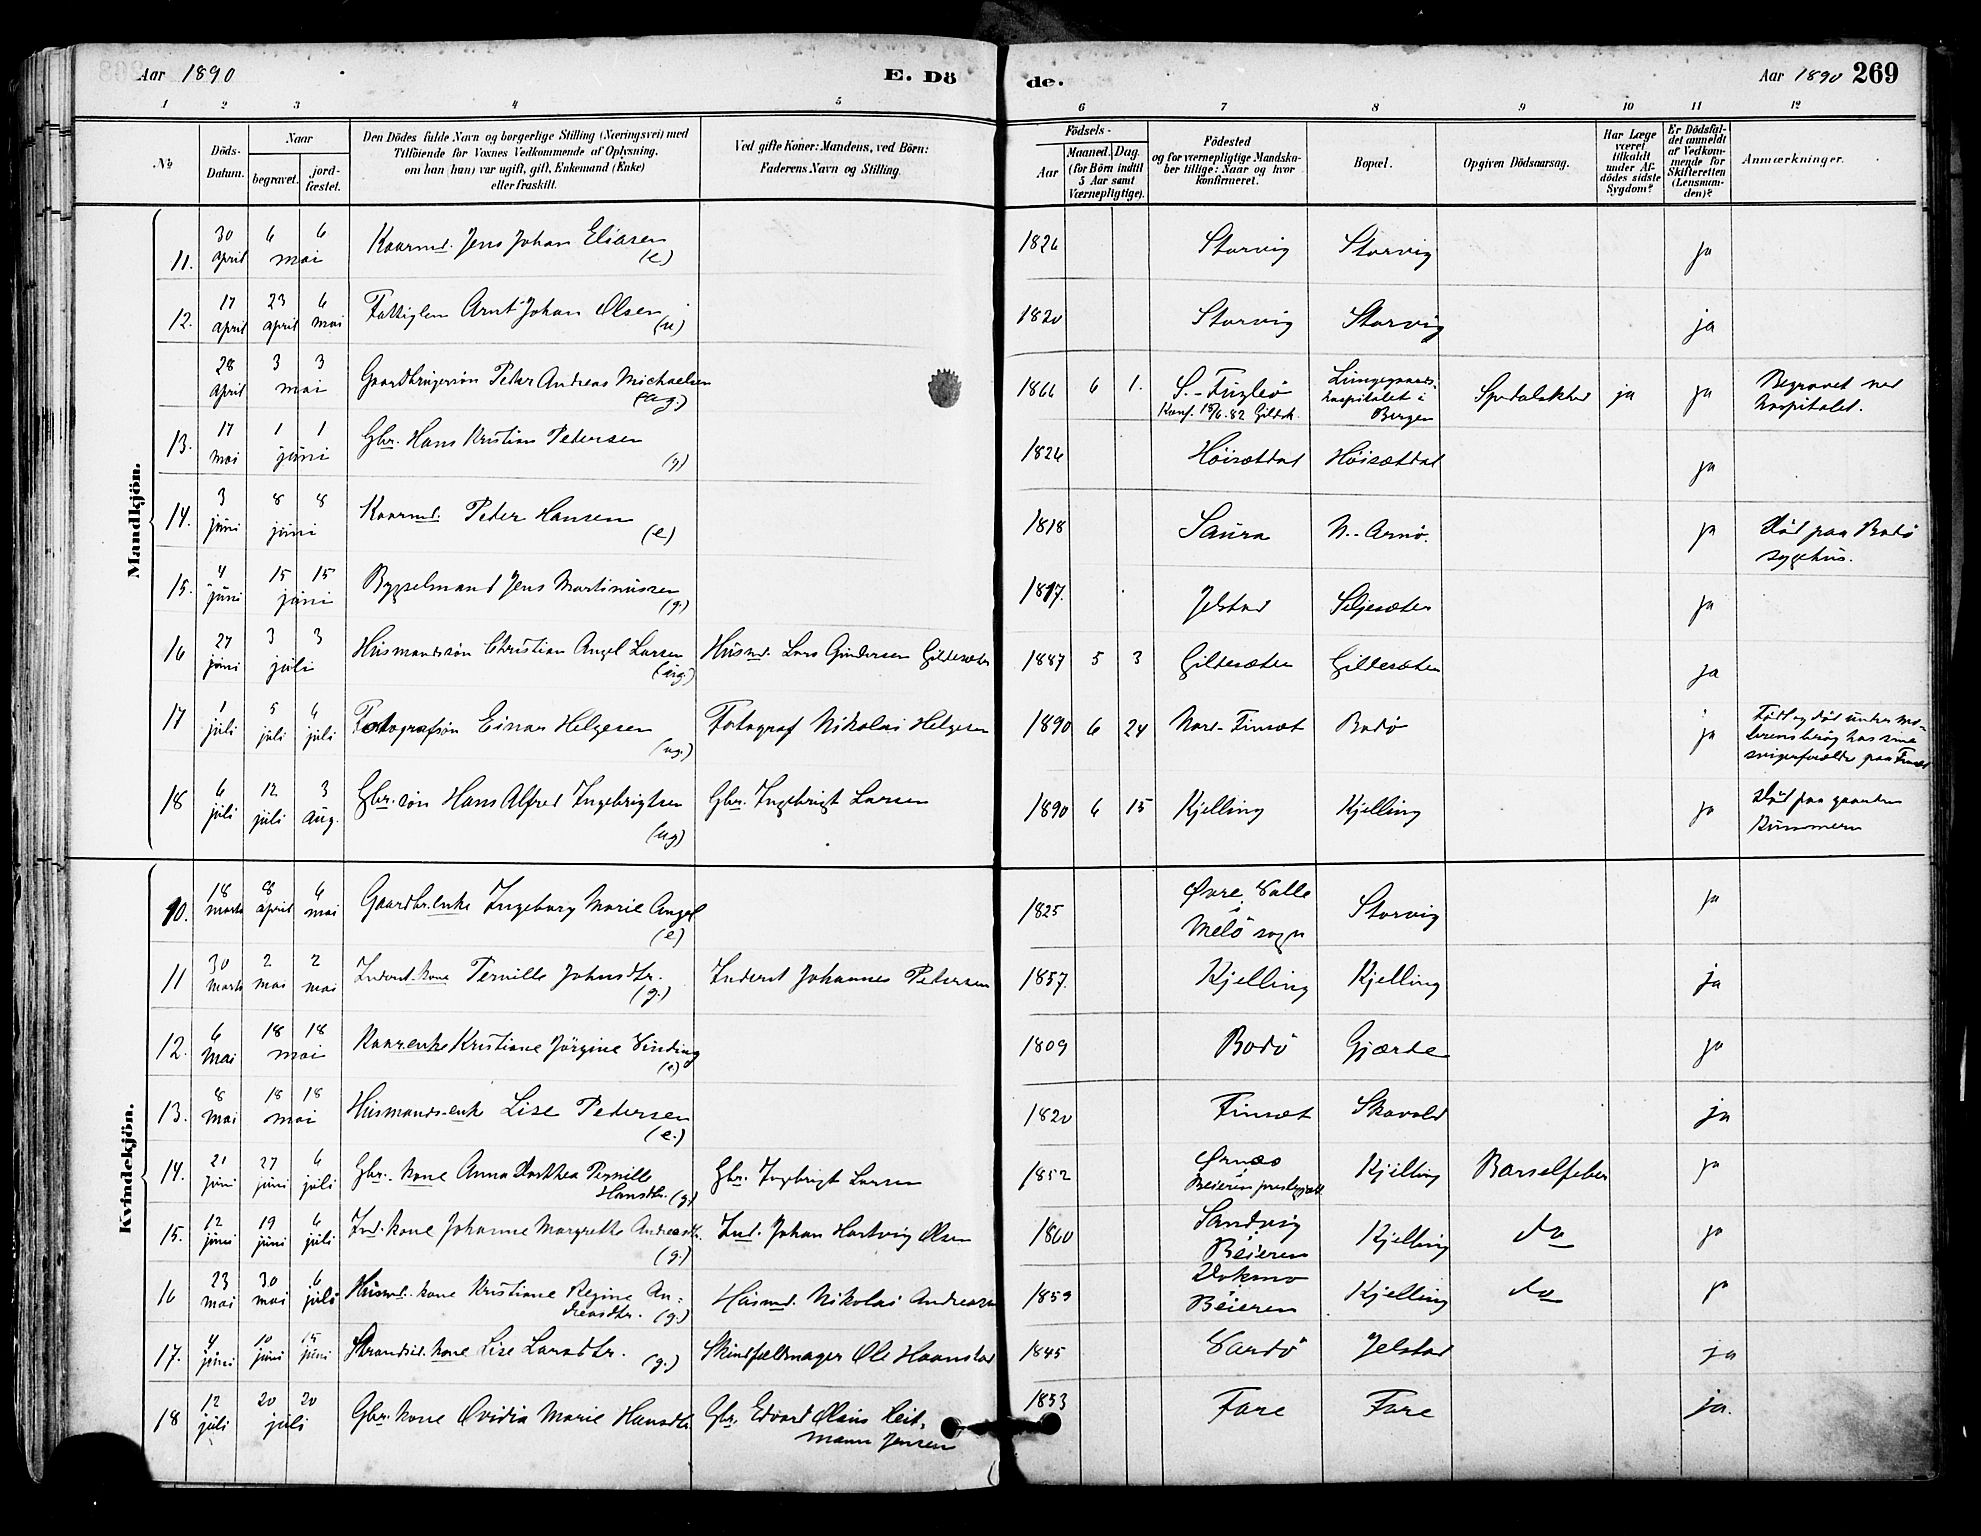 Aar 1890
E. Dö
de.
Aar 1890 269
1 2 3 4 5 6 7 8 9 10 11 12
No
Döds-
Datum.
Naar
begravet.
jord-
fæstet.
Den Dödes fulde Navn og borgerlige Stilling (Næringsvei) med
Tilföiende for Voxnes Vedkommende af Oplysning,
om han (hun) var ugift, gift, Enkemand (Enke)
eller fraskilt.
Ved gifte Koner: Mandens, ved Börn:
Faderens Navn og Stilling.
Födsels-
Aar
Maaned. Dag.
(for Börn indtil
5 Aar samt
Værnepligtige).
Födested
og for værnepligtige Mandska-
ber tillige: Naar og hvor
konfirmeret.
Bopæl.
Opgiven Dödsaarsag.
Har Læge
været
tilkaldt
under Af-
dödes sidste
Sygdom?
Er Dödsfal-
det anmeldt
af Vedkom-
mende for
Skifteretten
(Lensman-
den)?
Anmærkninger.
Mandkjön.
11. 30 april 6 6 mai Kaarmd. Jens Johan Eliasen (e) 1826 Storvig Storvig ja
12. 17 april 23 april 6 mai Fattiglem Arnt Johan Olsen (u) 1820 Storvig Storvig ja
28 april 3 3 mai Gaardbrugersøn Peter Andreas Michaelsen (ug.) 1866 6 1. S.-Fugleö
Konf. 18/6.82 Gildsk. Lungegaards-
hospitalet i
Bergen Spedalskhed ja ja Begravet ved
hospitalet.
13. 17 mai 1 1 juni Gbr. Hans Kristian Petersen (g) 1826 Höisætdal Höisætdal ja
14. 3 juni 8 8 juni Kaarmd. Peter Hansen (e) 1818 Saura N.-Arnö. ja Död paa Bodö
sygehus.
15. 4 juni 15 15 juni Bygselmand Jens Martinussen (g.) 1817. Jelstad Seljesæter ja
16 27 juni 3 3 juli Husmandssön Christian Angel Larsen (ug.) Husmd. Lars Gundersen Gildesæter 1887 5 3 Gildesæter Gildesæter ja
17 1 juli 5 juli 6 juli Fotografsön Einar Helgesen (ug.) Fotograf Nikolai Helgesen 1890 6 24 Nord-Finsæt Bodö ja Födt og död under mo-
derens besög hos sine
svigerforældre paa Finsæt
18 6 juli 12 juli 3 aug. Gbr. sön Hans Alfred Ingebrigtsen (ug) Gbr. Ingebrigt Larsen 1890 6 15 Kjelling Kjelling ja Död paa gaarden
Kummern
Kvindekjön.
10. 18 marts 8 april 6 mai Gaardbr.enke Ingeborg Marie Angel (e) 1825 Øvre Valle
i
Melö sogn Storvig ja
11 30 marts 2 mai 2 mai Inderst.kone Pernille Johnsdtr. (g.) Inderst Johannes Petersen 1857. Kjelling Kjelling ja
12. 6 mai 18 18 mai Kaar.enke Kristiane Jörgine Vinding (e) 1809 Bodö Gjærde ja
13. 8 mai 18 18 mai Husmands-enke Lise Pedersen (e.) 1820 Finsæt Skavold ja
14. 21 juni 27 juni 6 juli Gbr. kone Anna Dorthea Pernille
Hansdtr. (g.) Gbr. Ingebrigt Larsen 1852 Ørnæs
Beieren prestegjæld Kjelling Barselfeber ja
15. 12 juni 19 juni 6 juli Ind. kone Johanne Margrethe Andreasdtr. (g.) Ind. Johan Hartvig Olsen 1860 Sandvig
Beieren Kjelling do ja
16 23 mai 30 mai 6 juli Husmd. kone Kristiane Regine An-
dreasdtr. (g.) Husmd. Nikolai Andreasen 1859 Dokmo
Beieren Kjelling do ja
17. 4 juni 10 juni 15 juni Strandsid. kone Lise Larsdtr. (g.) Skindfældmager Ole Haanstad 1845 Vardö Jelstad ja
18 12 juli 20 20 juli Gbr. kone Ovidia Marie Hansdtr. Gbr. Edvard Olaus Heit-
mann Jensen 1853 Fore Fore ja.